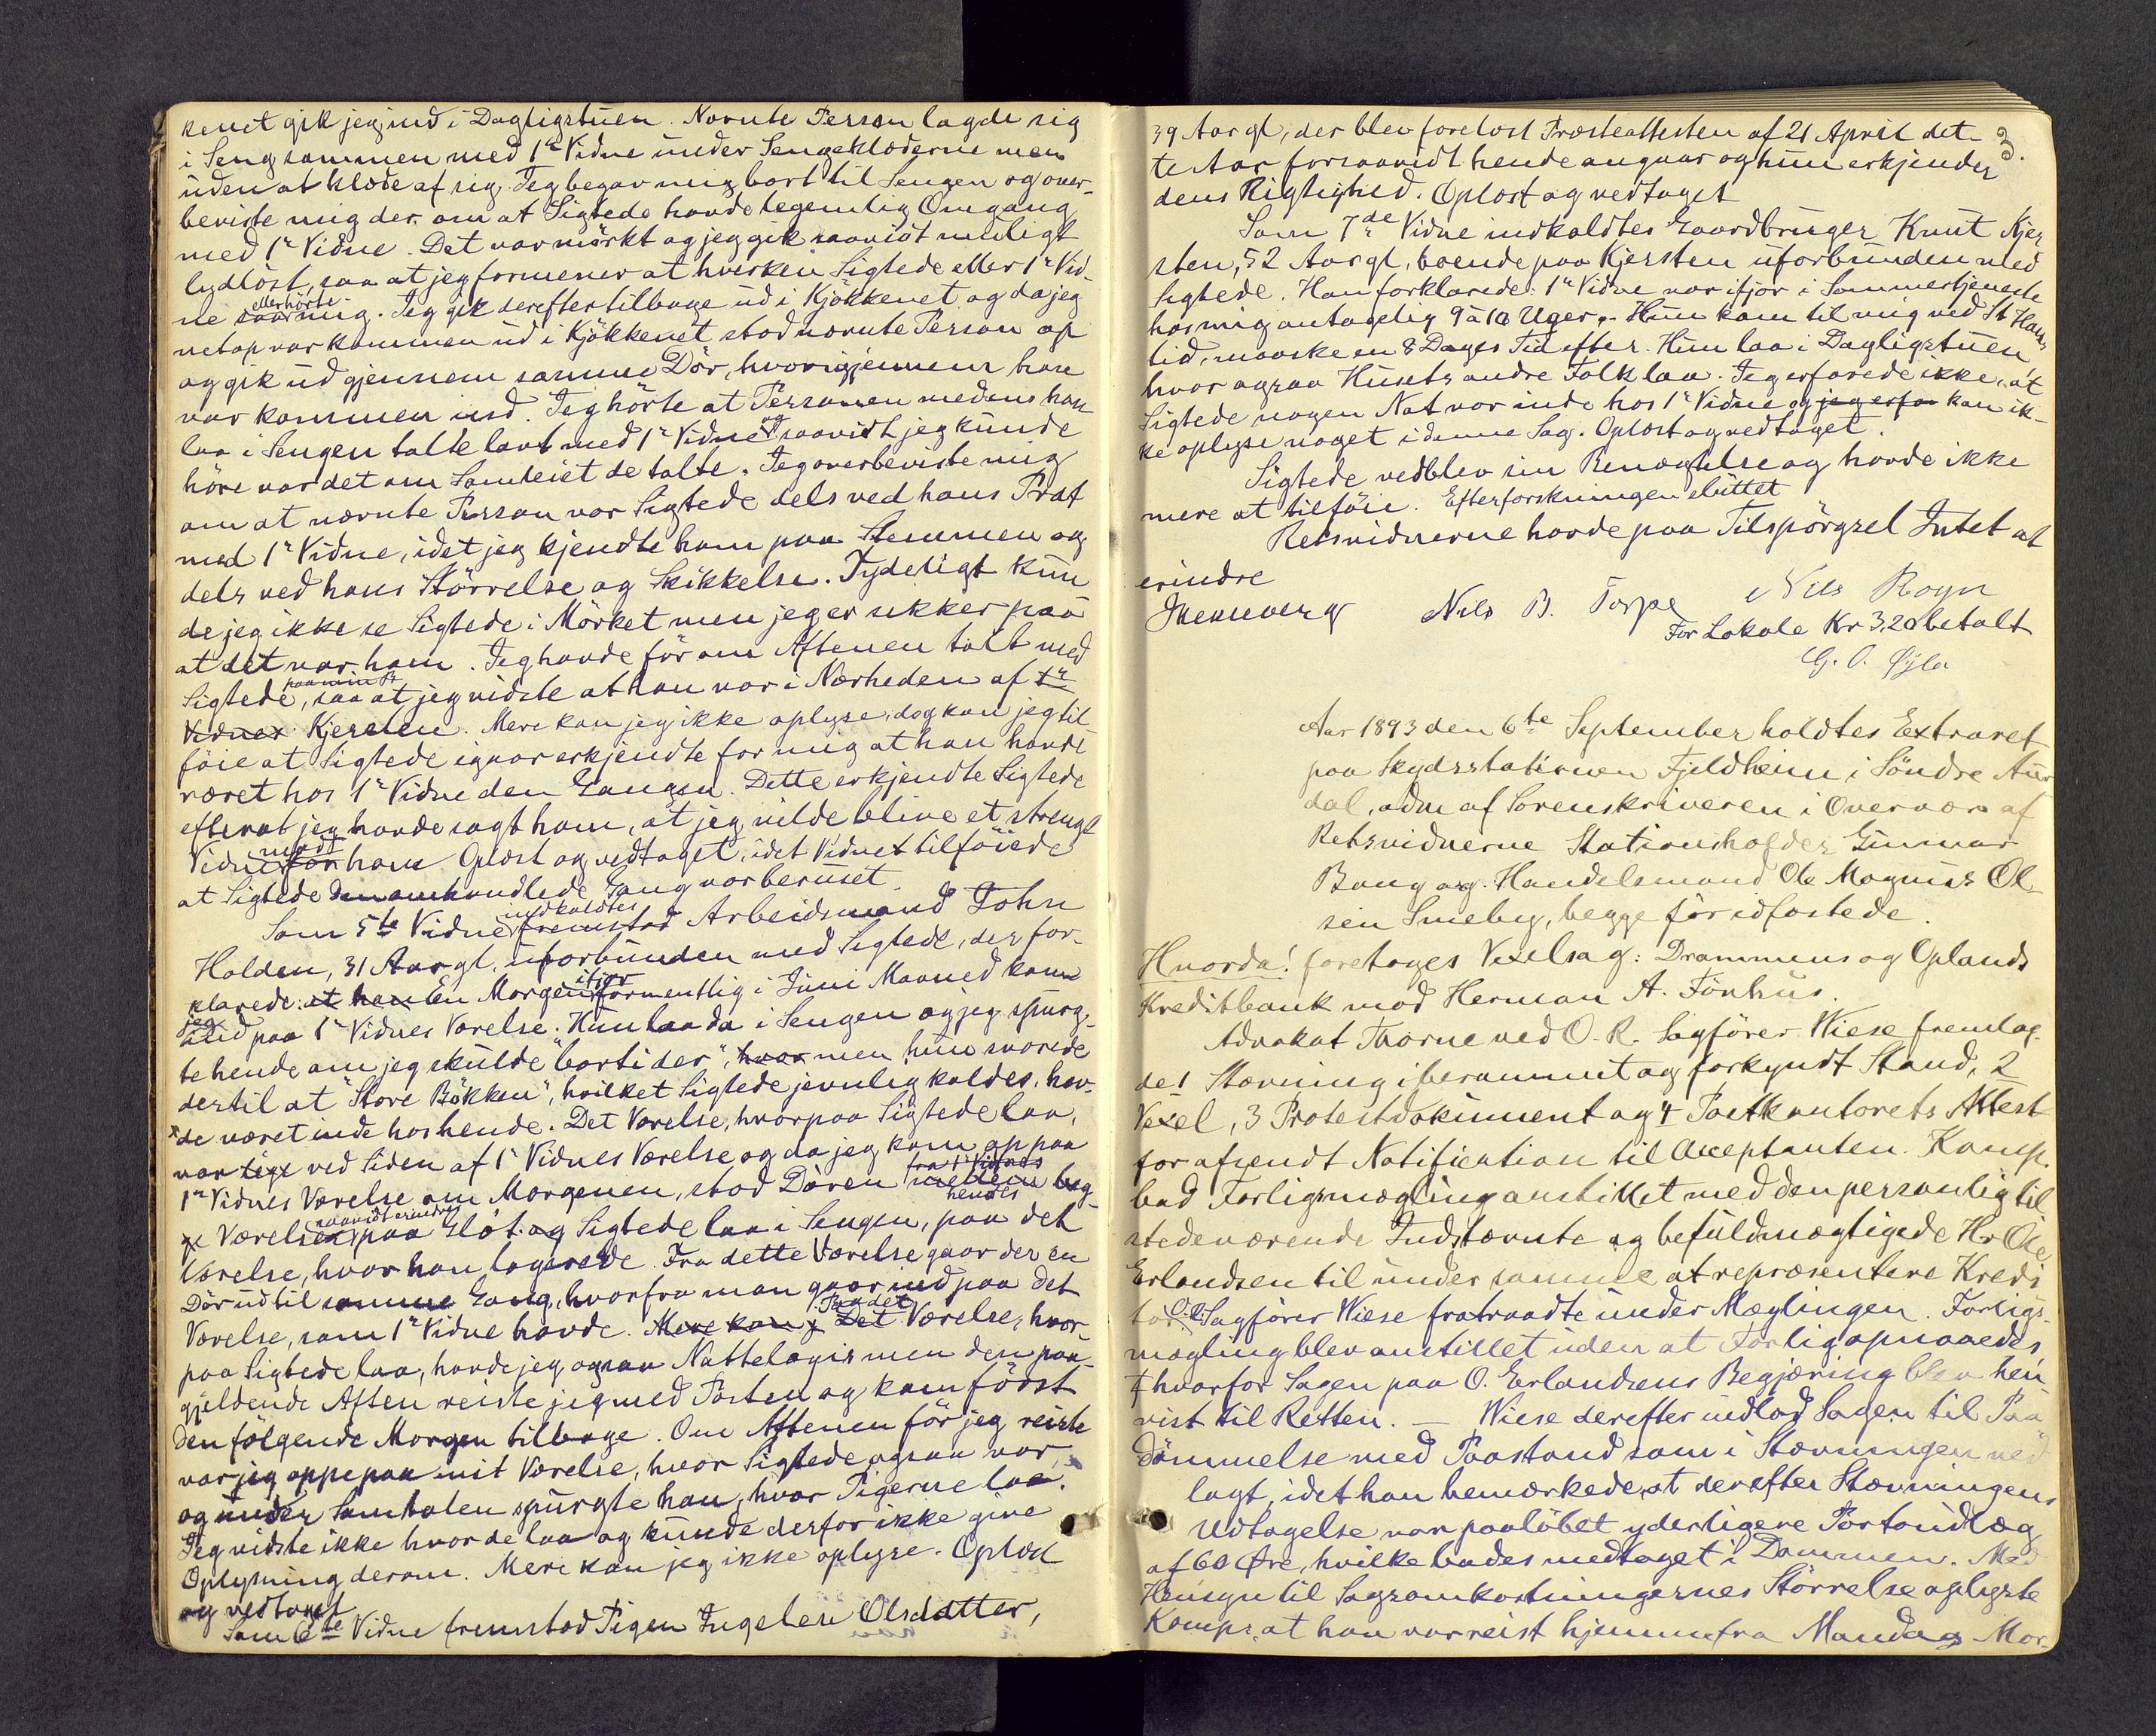 kenet gik jeg ind i Dagligstuen. Nævnte Person lagde sig
i Seng sammen med 1ste Vidne under Sengeklæderne men
uden at klæde af sig. Jeg begav mig bort til Sengen og over-
beviste mig der om at Sigtede havde legemlig Omgang
med 1ste Vidne. Det var mörkt og jeg gik saavidt muligt
lydlöst, saa at jeg formener at hverken Sigtede eller 1ste Vid-
ne saa eller hörte mig. Jeg gik derefter tilbage ud i Kjökkenet og da jeg
netop var kommen ud i Kjökkenet stod nævnte Person op
og gik ud gjennem samme Dör, hvorigjennem han
var kommen ind. Jeg hörte at Personen medens han
laa i Sengen talte lavt med 1ste Vidne og saavidt jeg kunde
höre var det om Samleiet de talte. Jeg overbeviste mig
om at nævnte Person var Sigtede dels ved hans Prat
med 1ste Vidne, idet jeg kjendte ham paa Stemmen og
dels ved hans Störrelse og Skikkelse. Tydeligt kun-
de jeg ikke se Sigtede i Mörket men jeg er sikker paa
at det var ham. Jeg havde för om Aftenen talt med
Sigtede, saa at jeg vidste at han var i Nærheden af 1ste
Vidnes Kjersten. Mere kan jeg ikke oplyse, dog kan jeg til-
föie at Sigtede igaar erkjendte for mig at han havde
været hos 1ste Vidne den Gangen. Dette erkjendte Sigtede
efterat jeg havde sagt ham, at jeg vilde blive et strengt
Vidne for mod ham. Oplæst og vedtaget, idet Vidnet tilföiede
at Sigtede den omhandlede Gang var beruset.
Som 5te Vidne fremstod indkaldtes Arbeidsmand John
Holden, 31 Aar gl. uforbunden med Sigtede, der for-
klarede: at han En Morgen ifjor formentlig i Juni Maaned kom
jeg ind paa 1ste Vidnes Værelse. Hun laa da i Sengen og jeg spurg-
te hende om jeg skulde "borti der", hvor men hun svarede
dertil at "Store Bökken", hvilket Sigtede jevnlig kaldes, hav-
de været inde hos hende. Det Værelse, hvorpaa Sigtede laa,
var lige ved Siden af 1ste Vidnes Værelse og da jeg kom op paa
1ste Vidnes Værelse om Morgenen, stod Dören mellem beg- fra 1ste Vidnes
ge Værelser saavidt erindres paa Glöt og Sigtede laa i Sengen, paa det
Værelse, hvor han logerede. Fra dette Værelse gaar der en
Dör ud til samme Gang, hvorfra man gaar ind paa det
Værelse, som 1ste Vidne havde. Mere kan j Det Paa det Værelse, hvor-
paa Sigtede laa, havde jeg ogsaa Nattelogis men den paa-
gjeldende Aften reiste jeg med Posten og kom först
den fölgende Morgen tilbage. Om Aftenen för jeg reiste
var jeg oppe paa mit Værelse, hvor Sigtede ogsaa var,
og under Samtalen spurgte han, hvor Pigerne laa.
Jeg vidste ikke hvor de laa og kunde derfor ikke give
Oplysning derom. Mere kan jeg ikke oplyse. Oplæst
og vedtaget
Som 6te Vidne fremstod Pigen Ingeleie Olsdatter,
3.
39 Aar gl, der blev forelæst Præsteattesten af 21 April det-
te Aar forsaavidt hende angaar og hun erkjender
dens Rigtighed. Oplæst og vedtaget
Som 7de Vidne indkaldtes Gaardbruger Knut Kjer-
sten, 52 Aar gl, boende paa Kjersten uforbunden med
Sigtede. Han forklarede: 1ste Vidne var ifjor i Sommertjeneste
hos mig antagelig 9 à 10 Uger. Hun kom til mig ved St Hans
tid, maaske en 8 Dages Tid efter. Hun laa i Dagligstuen
hvor ogsaa Husets andre Folk laa. Jeg erfarede ikke, at
Sigtede nogen Nat var inde hos 1ste Vidne og jeg erfar kan ik-
ke oplyse noget i denne Sag. Oplæst og vedtaget.
Sigtede vedblev sin Benægtelse og havde ikke
mere at tilföie. Efterforskningen sluttet
Retsvidnerne havde paa Tilspörgsel Intet at
erindre
Nils B. Torpe Nils Rogn
For Lokale Kr 3,20 betalt
Aar 1893 den 6te September holdtes Extraret
paa Skydsstationen Fjeldheim i Söndre Aur-
dal, adm af Sorenskriveren i Overvær af
Retsvidnerne Stationsholder Gunnar
Bang og Handelsmand Ole Magnus Ol-
sen Smeby, begge för edfæstede.
Hvorda! foretoges Vexelsag: Drammens og Oplands
Kreditbank mod Herman A. Fönhus.
Advokat Thorne ved O. R. Sagförer Wiese fremlag-
de 1 Stævning i berammet og forkyndt Stand, 2
Vexel, 3 Protestdokument og 4 Postkontorets Attest
for afsendt Notification til Acceptanten. Komp.
bad Forligsmægling anstillet med den personlig til-
stedeværende Indstævnte og befuldmægtigede Hr Ole
Erlandsen til under samme at repræsentere Kredi-
tor. O.R. Sagförer Wiese fratraadte under Mæglingen. Forligs-
mægling blev anstillet uden at Forlig opnaaedes
hvorfor Sagen paa O. Erlandsens Begjæring blev hen-
vist til Retten. — Wiese derefter indlod Sagen til Paa-
dömmelse med Paastand som i Stævningen ned-
lagt, idet han bemærkede, at der efter Stævningens
Udtagelse var paalöbet yderligere Portoudlæg
af 60 Øre, hvilke bades medtaget i Dommen. Med
Hensyn til Sagsomkostningernes Störrelse oplyste
Komp. at han var reist hjemmefra Mandag Mor-